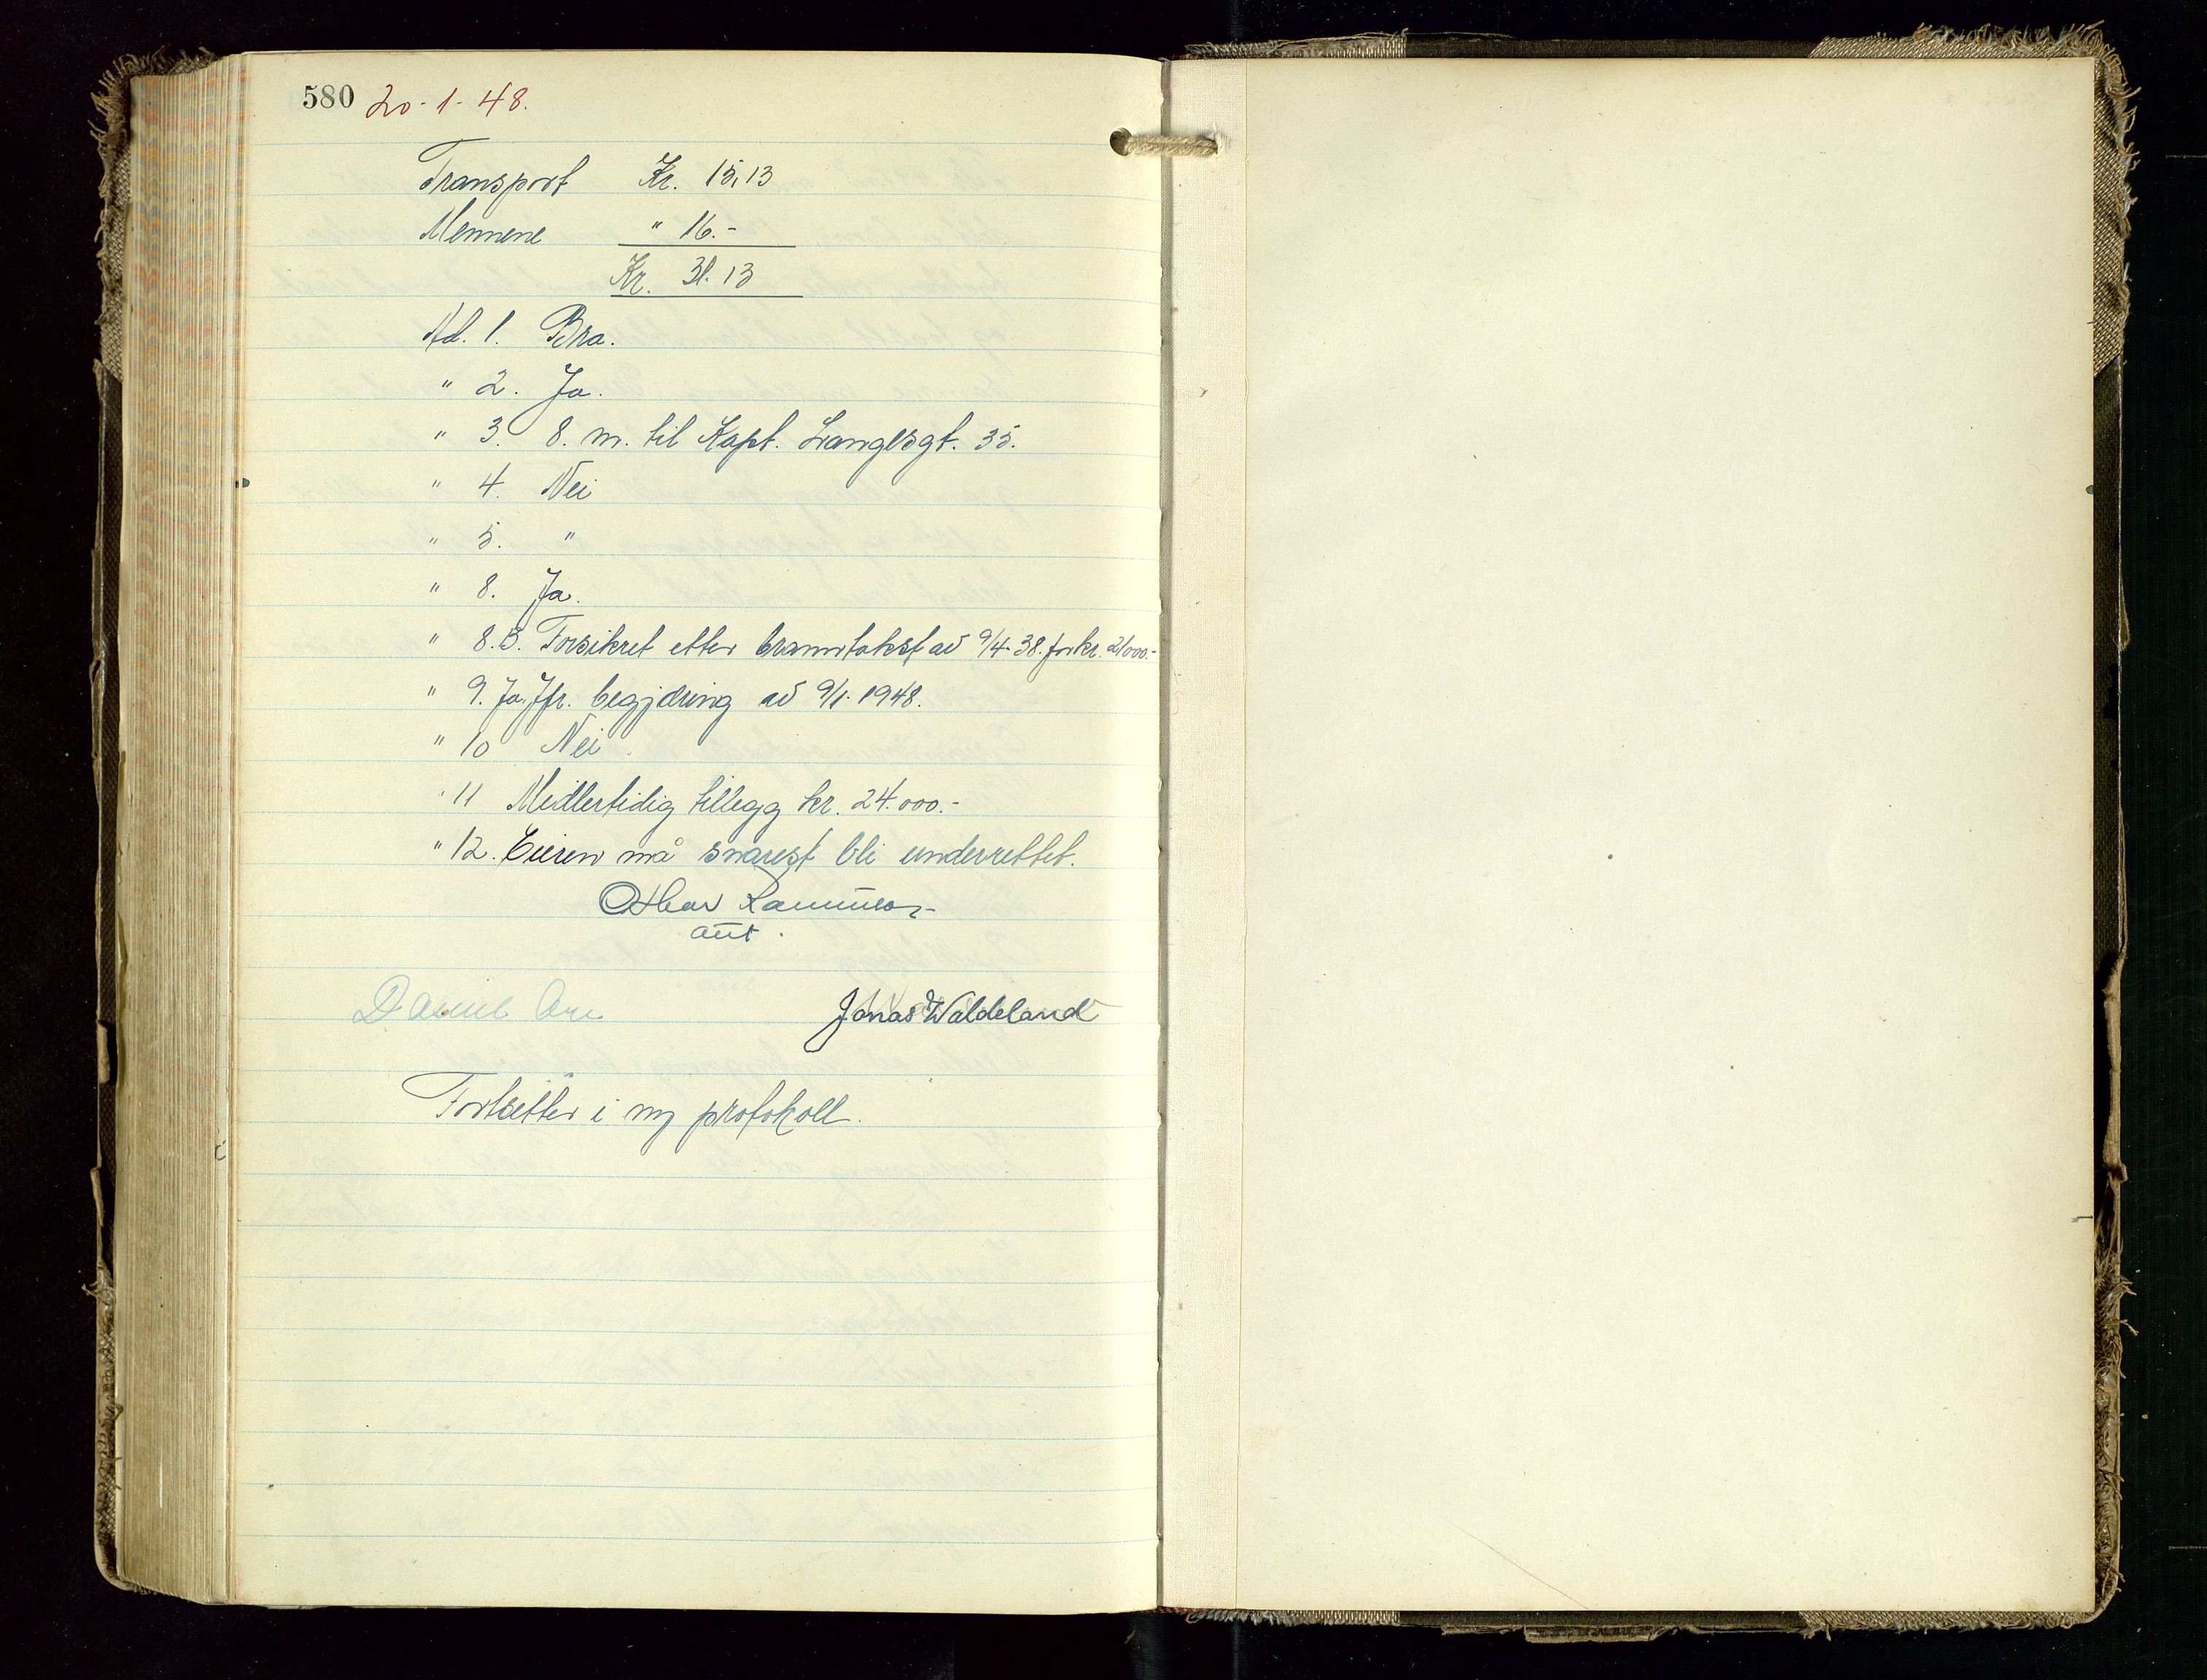 580 20-1-48.
Transport Kr. 15,13
Mennene " 16.-
Kr. 31.13
Ad. 1. Bra.
" 2. Ja.
" 3. 8. m. til Kapt. Langesgt. 35.
" 4. Nei
" 5. "
" 8. Ja.
" 8.B. Forsikret etter branntakst av 9/4-38. for kr. 21000.-
" 9. Ja. Jfr. begjæring av 9/1-1948.
" 10 Nei.
" 11 Midlertidig tillegg kr. 24.000.-
" 12. Eieren må snarest bli underrettet.
Oskar Rasmussen
aut.
Daniel Jonas Waldeland
Fortsetter i ny protokoll.